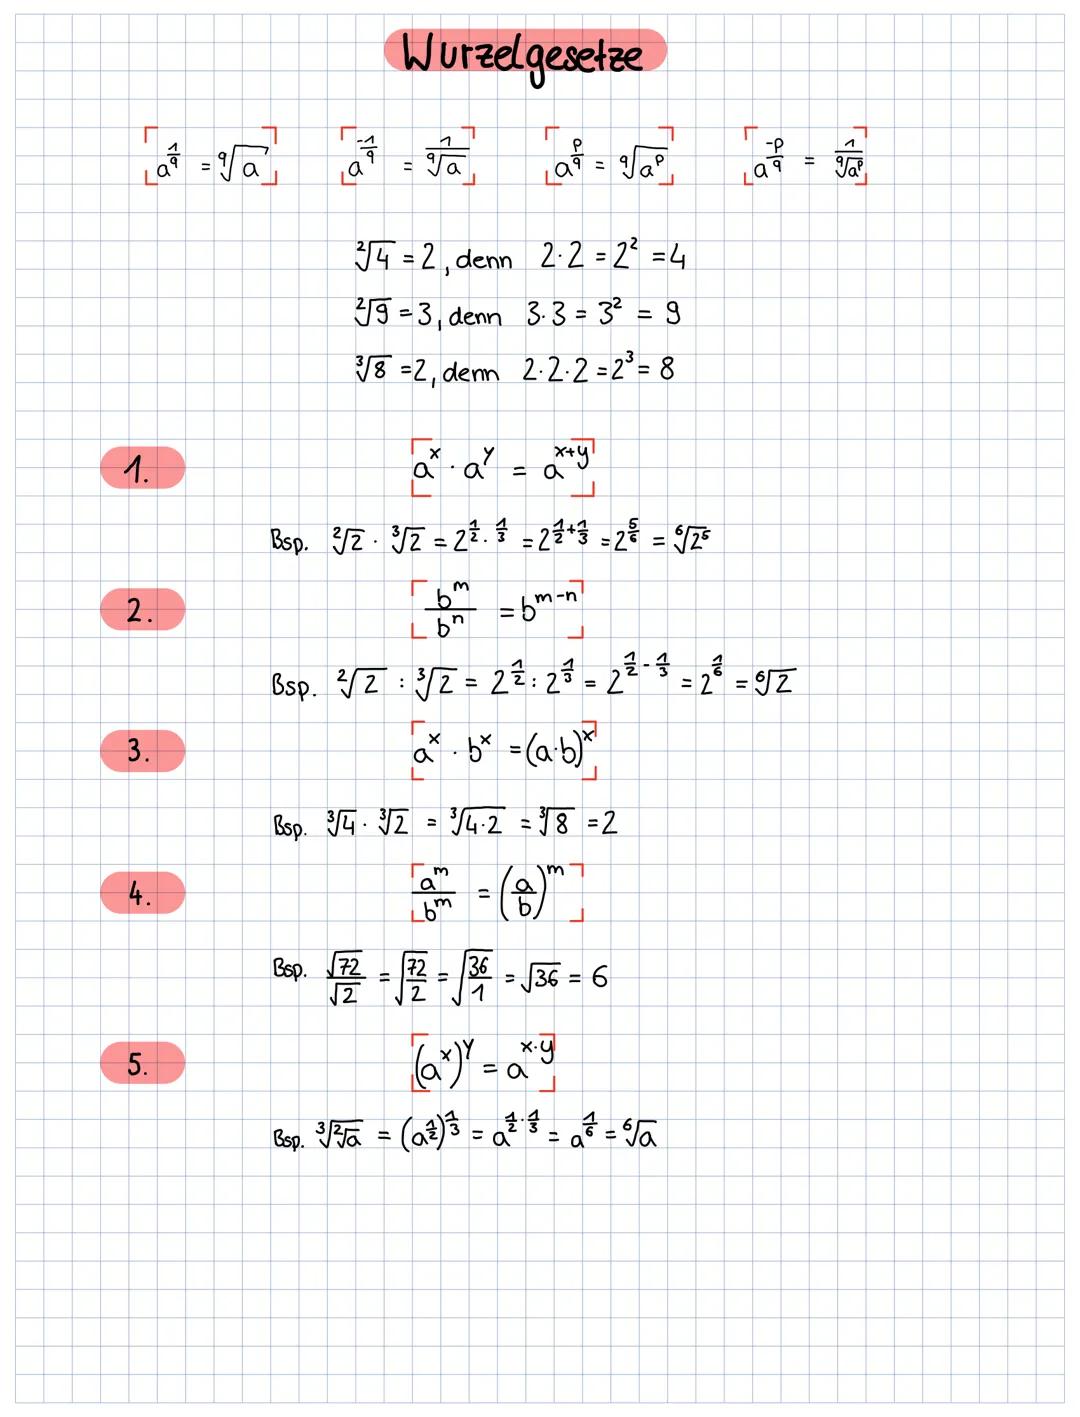 Wurzelgesetze
a^(1/q) = q√a   a^(-1/q) = 1/(q√a)   a^(p/q) = q√(a^p)   a^(-p/q) = 1/(q√(a^p))
²√4 = 2, denn 2·2 = 2² = 4
²√9 = 3, denn 3·3 = 3² = 9
³√8 = 2, denn 2·2·2 = 2³ = 8
1. a^x · a^y = a^(x+y)
Bsp. ²√2 · ³√2 = 2^(1/2 · 1/3) = 2^(1/2 + 1/3) = 2^(5/6) = ⁶√(2⁵)
2. b^m / b^n = b^(m-n)
Bsp. ²√2 : ³√2 = 2^(1/2) : 2^(1/3) = 2^(1/2 - 1/3) = 2^(1/6) = ⁶√2
3. a^x · b^x = (a·b)^x
Bsp. ³√4 · ³√2 = ³√(4·2) = ³√8 = 2
4. a^m / b^m = (a/b)^m
Bsp. √72 / √2 = √(72/2) = √(36/1) = √36 = 6
5. (a^x)^y = a^(x·y)
Bsp. ³√(²√a) = (a^(1/2))^(1/3) = a^(1/2 · 1/3) = a^(1/6) = ⁶√a